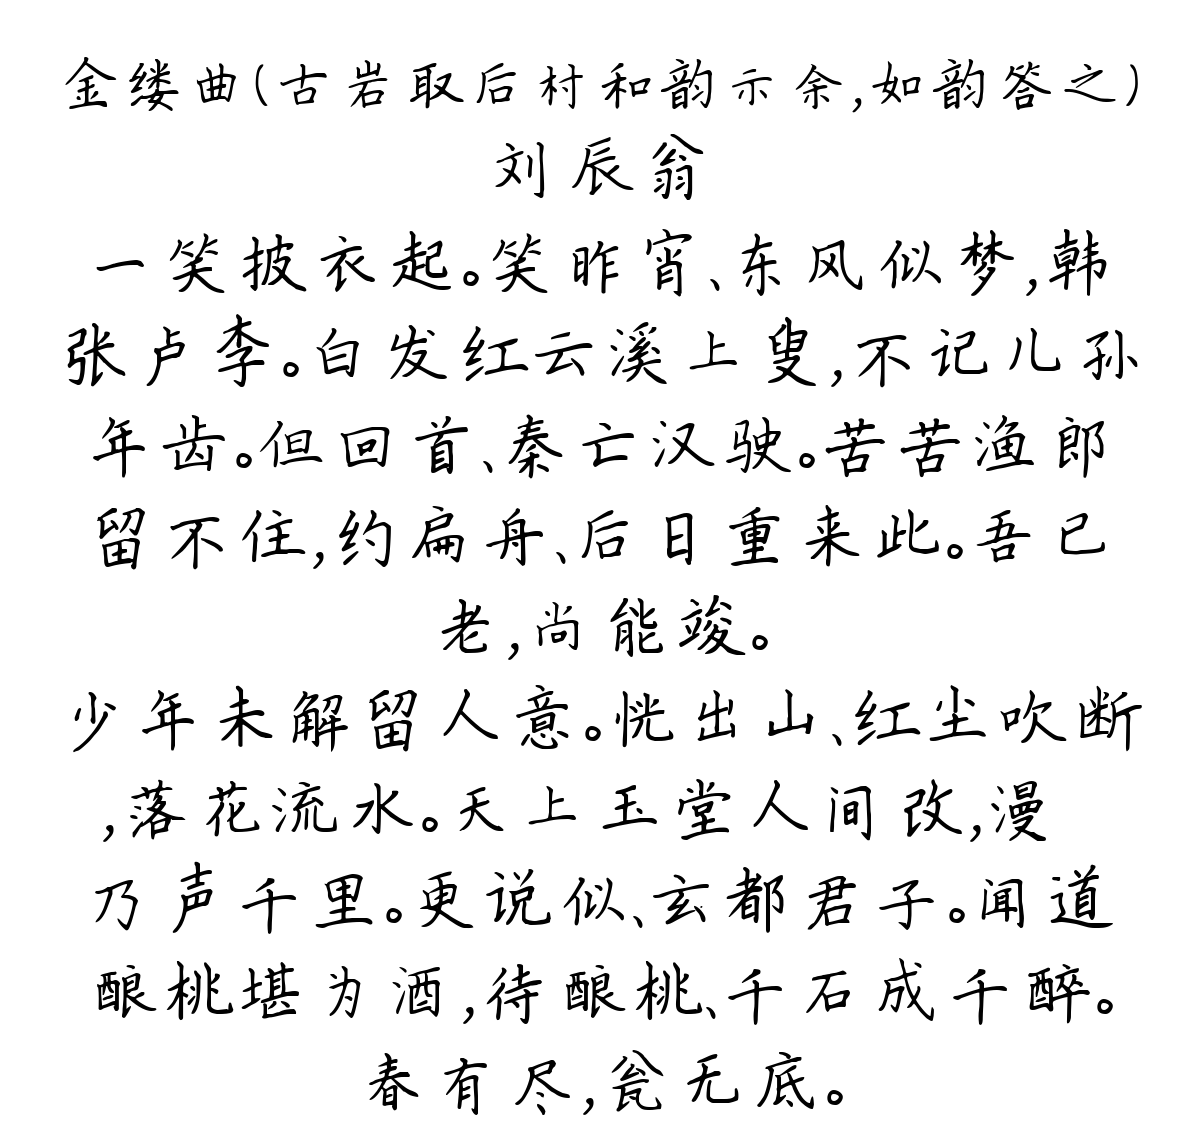 金缕曲(古岩取后村和韵示余,如韵答之)
刘辰翁
一笑披衣起。笑昨宵、东风似梦,韩
张卢李。白发红云溪上叟,不记儿孙
年齿。但回首、秦亡汉驶。苦苦渔郎
留不住,约扁舟、后日重来此。吾已
老,尚能竢。
少年未解留人意。恍出山、红尘吹断
,落花流水。天上玉堂人间改,漫
乃声千里。更说似、玄都君子。闻道
酿桃堪为酒,待酿桃、千石成千醉。
春有尽,瓮无底。